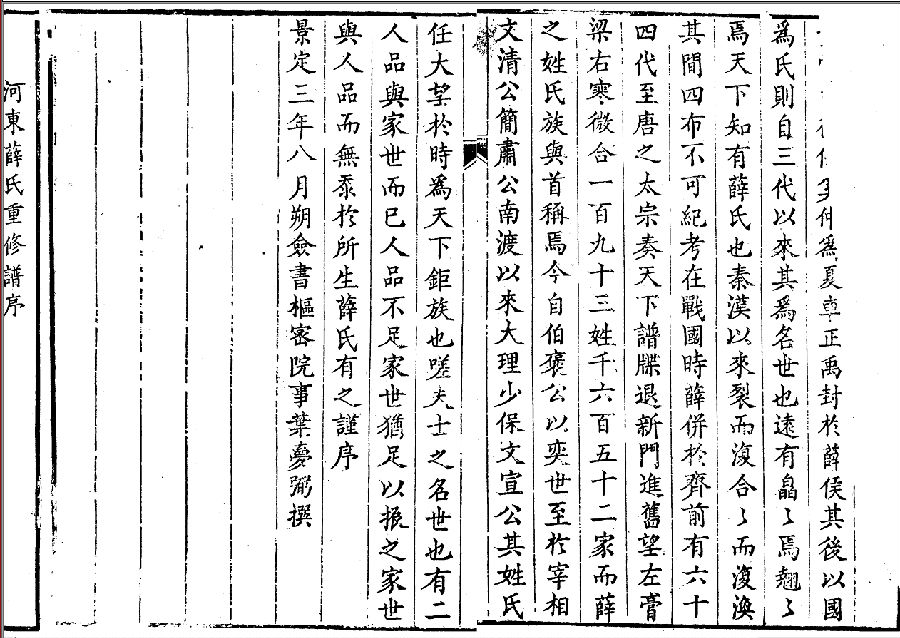 仲為夏車正禹封於薛侯其後以國
爲氏則自三代以來其爲名世也遠有皛〻焉翹〻
焉天下知有薛氏也秦漢以來裂而復合〻而復渙
其間四布不可紀考在戰國時薛併於齊前有六十
四代至唐之太宗奏天下譜牒退新門進舊望左膏
梁右寒微合一百九十三姓千六百五十二家而薛
之姓氏族與首稱焉今自伯褒公以奕世至於宰相
文清公簡肅公南渡以來大理少保文宣公其姓氏
任大望於時爲天下鉅族也嗟夫士之名世也有二
人品與家世而已人品不足家世猶足以振之家世
與人品而無忝於所生薛氏有之謹序
景定三年八月朔僉書樞密院事葉夢弼撰
河東薛氏重修譜序